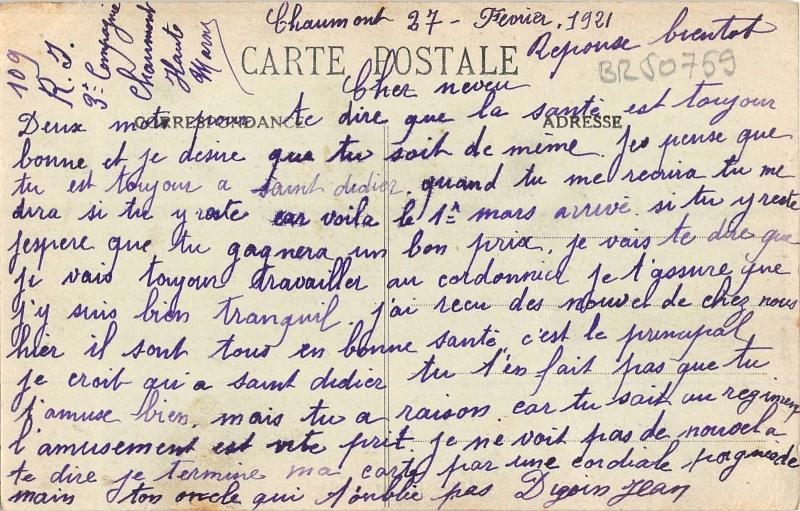 Chaumont 27 - Février, 1921
109 R. I.
3e Compagnie
Chaumont
Haute
Marne
Reponse bientot
CARTE POSTALE
BR50759
Cher neveu
CORRESPONDANCE
ADRESSE
Deux mots pour te dire que la santé est toujour
bonne et je désire que tu soit de même. Je pense que
tu est toujour a saint didier. quand tu me recrira tu me
dira si tu y reste car voila le 1er mars arrivé si tu y reste
j'espere que tu gagnera un bon prix, je vais te dire que
je vais toujour travailler au cordonnier je t'assure que
j'y suis bien tranquil. j'ai recu des nouvel de chez nous
hier il sont tous en bonne santé c'est le principal
je croit qu'a saint didier tu t'en fait pas que tu
t'amuse bien, mais tu a raison car tu sait au regiment
l'amusement est vite prit je ne voit pas de nouvel a
te dire je termine ma carte par une cordiale poignée de
main ton oncle qui t'oublie pas Digoin Jean